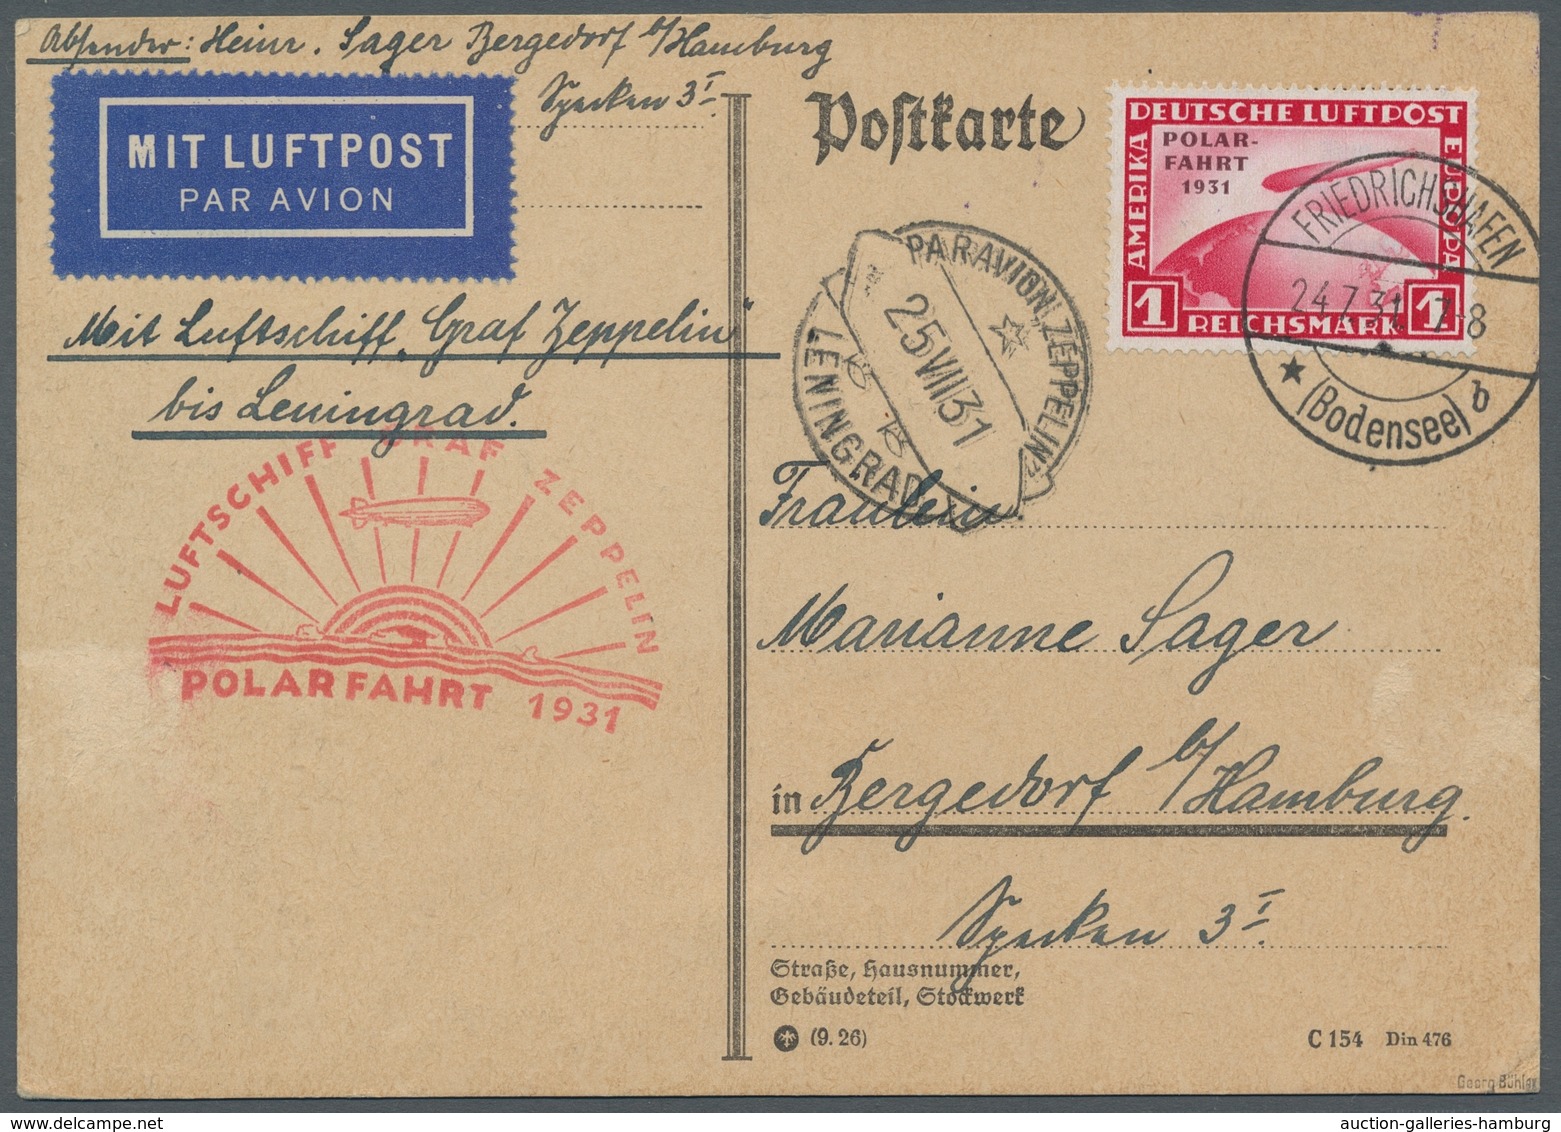 Absender: Heinr. Sager Bergedorf b/Hamburg
Specken 3 I
MIT LUFTPOST
PAR AVION
Mit Luftschiff „Graf Zeppelin"
bis Leningrad.
LUFTSCHIFF GRAF ZEPPELIN
POLARFAHRT 1931
Postkarte
PAR AVION „ZEPPELIN"
25 VII 31
LENINGRAD
DEUTSCHE LUFTPOST
POLAR-
FAHRT
1931
AMERIKA
EUROPA
1 REICHSMARK 1
FRIEDRICHSHAFEN
24.7.31. 7-8
★ (Bodensee) b
Fräulein
Marianne Sager
in Bergedorf b/Hamburg.
Specken 3 I.
Straße, Hausnummer,
Gebäudeteil, Stockwerk
(9. 26)
C 154 Din 476
Georg Bühler
auction-galleries-hamburg.com